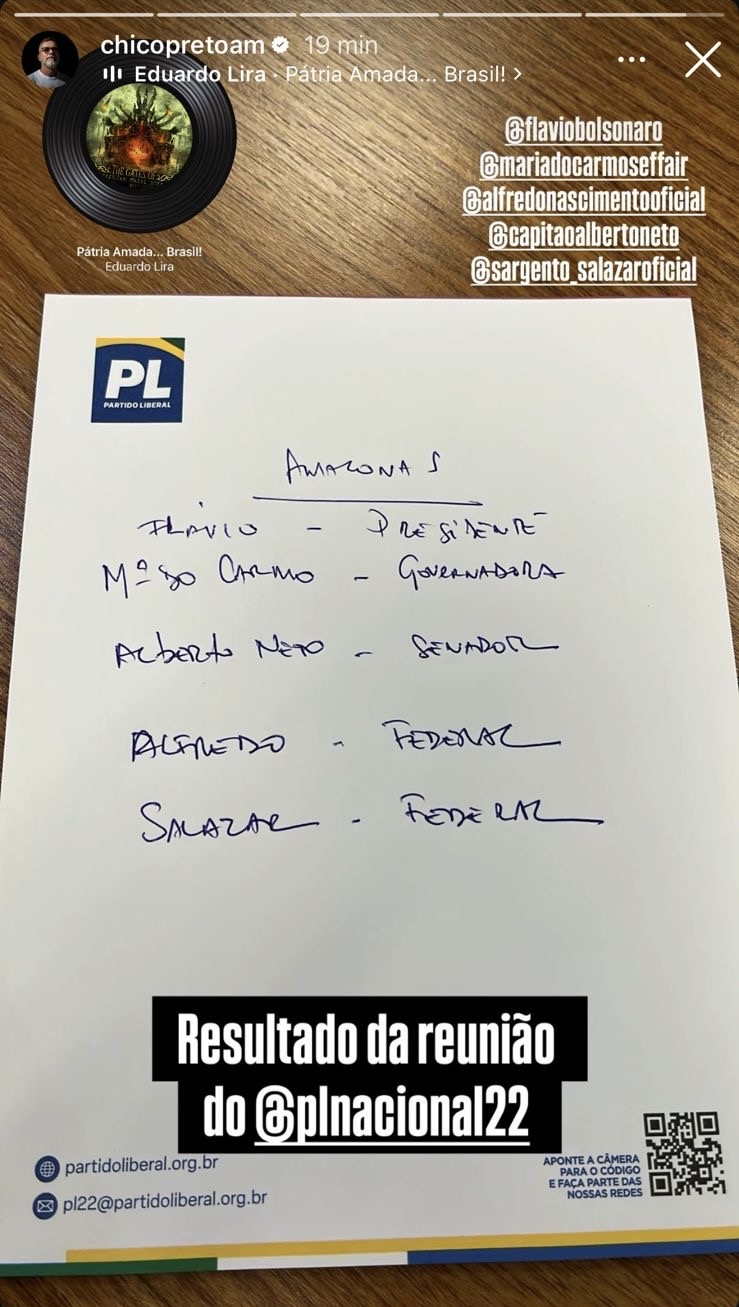 chicopretoam 19 min
Eduardo Lira · Pátria Amada... Brasil! >
THE GATES OF
Pátria Amada... Brasil!
Eduardo Lira
@flaviobolsonaro
@mariadocarmoseffair
@alfredonascimentooficial
@capitaoalbertoneto
@sargento_salazaroficial
PL
PARTIDO LIBERAL
AMAZONAS
FLÁVIO - PRESIDENTE
Mª DO CARMO - GOVERNADORA
ALBERTO NETO - SENADOR
ALFREDO - FEDERAL
SALAZAR - FEDERAL
Resultado da reunião
do @plnacional22
partidoliberal.org.br
pl22@partidoliberal.org.br
APONTE A CÂMERA
PARA O CÓDIGO
E FAÇA PARTE DAS
NOSSAS REDES